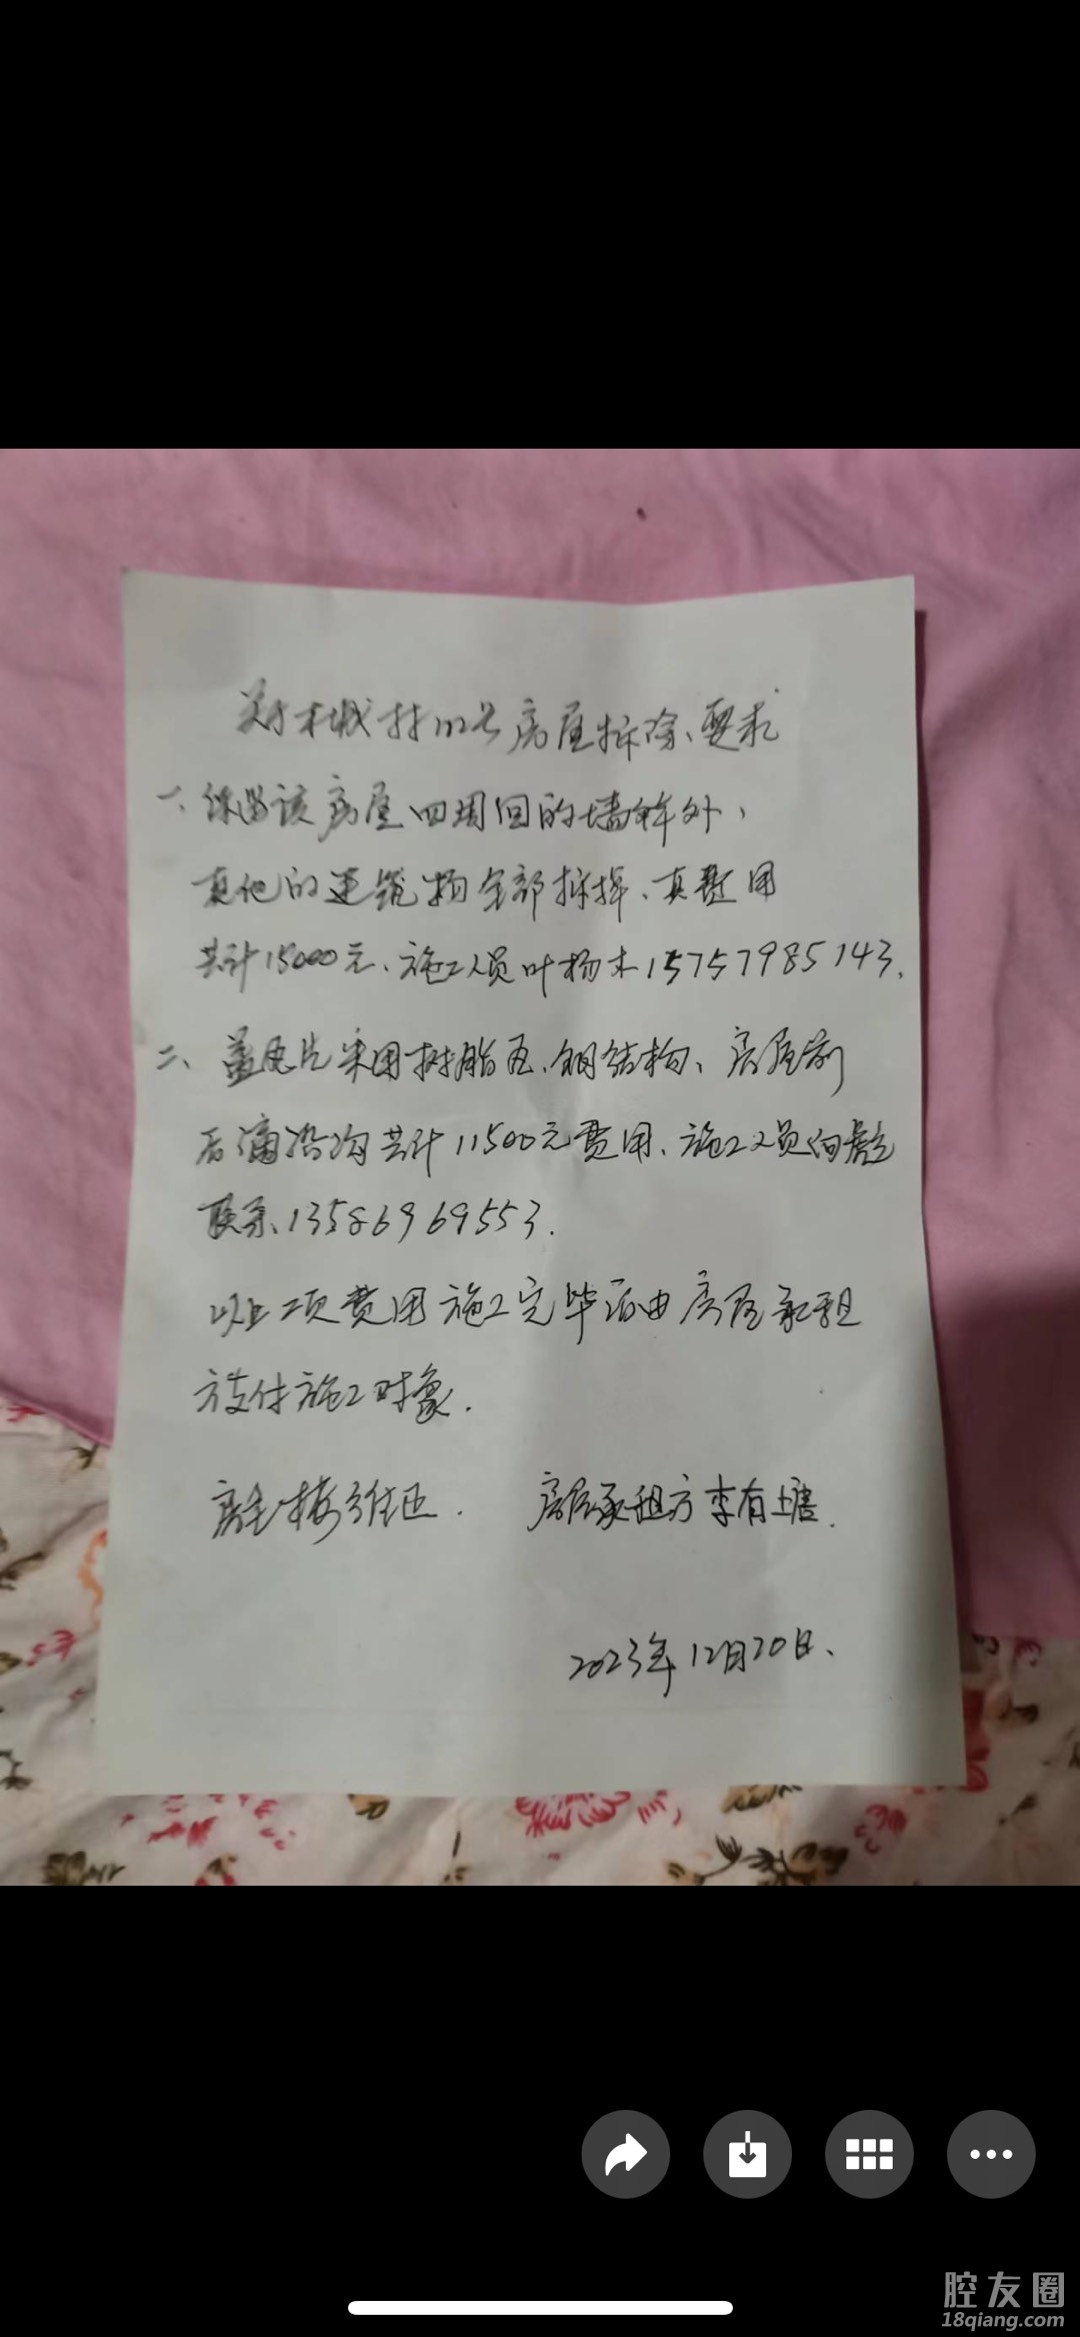 关于木城村112号房屋拆除、要求
一、保留该房屋四周围的墙体外，
其他的建筑物全部拆掉、其费用
共计15000元、施工人员叶杨木15757985143.
二、盖瓦片采用树脂瓦、钢结构、房屋前
后滴沿沟共计11500元费用、施工人员向彪
联系、13586969553.
以上二项费用施工完毕后由房屋承租
方支付施工对象.
房主 楼维正. 房屋承租方李有塘.
2023年12月20日、
腔友圈
18qiang.com